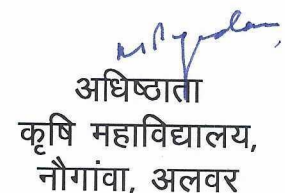 अधिष्ठाता
कृषि महाविद्यालय,
नौगांवा, अलवर